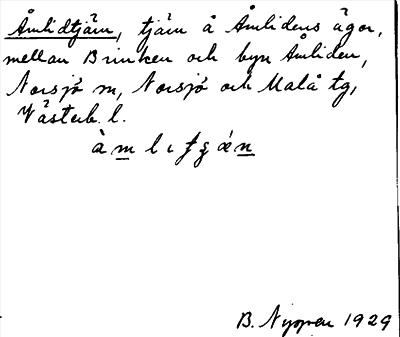 Åmlidtjärn, tjärn å Åmlidens ägor,
mellan Brinken och byn Åmliden,
Norsjö sn, Norsjö och Malå tg,
Västerb. l.
B. Nyman 1929